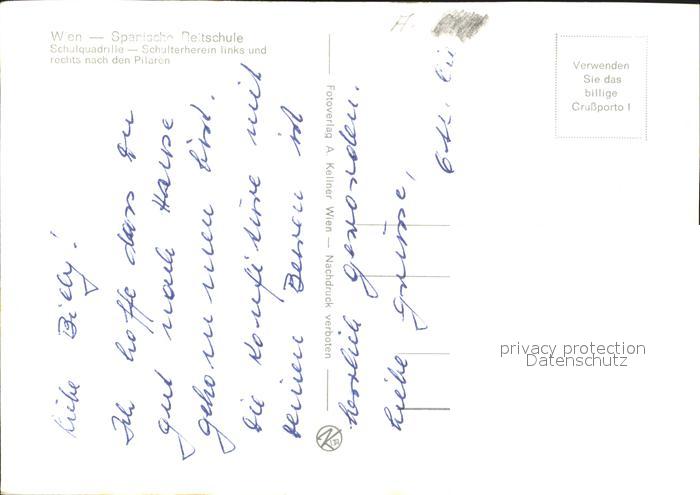 Wien — Spanische Reitschule
Schulquadrille — Schulterherein links und
rechts nach den Pilaren
Verwenden
Sie das
billige
Grußporto !
Fotoverlag A. Kellner Wien — Nachdruck verboten
Liebe Billy!
Ich hoffe dass Du
gut nach Hause
gekommen bist.
Die Konfitüre mit
deinen Beeren ist
herrlich geworden.
Liebe Grüsse,
privacy protection
Datenschutz